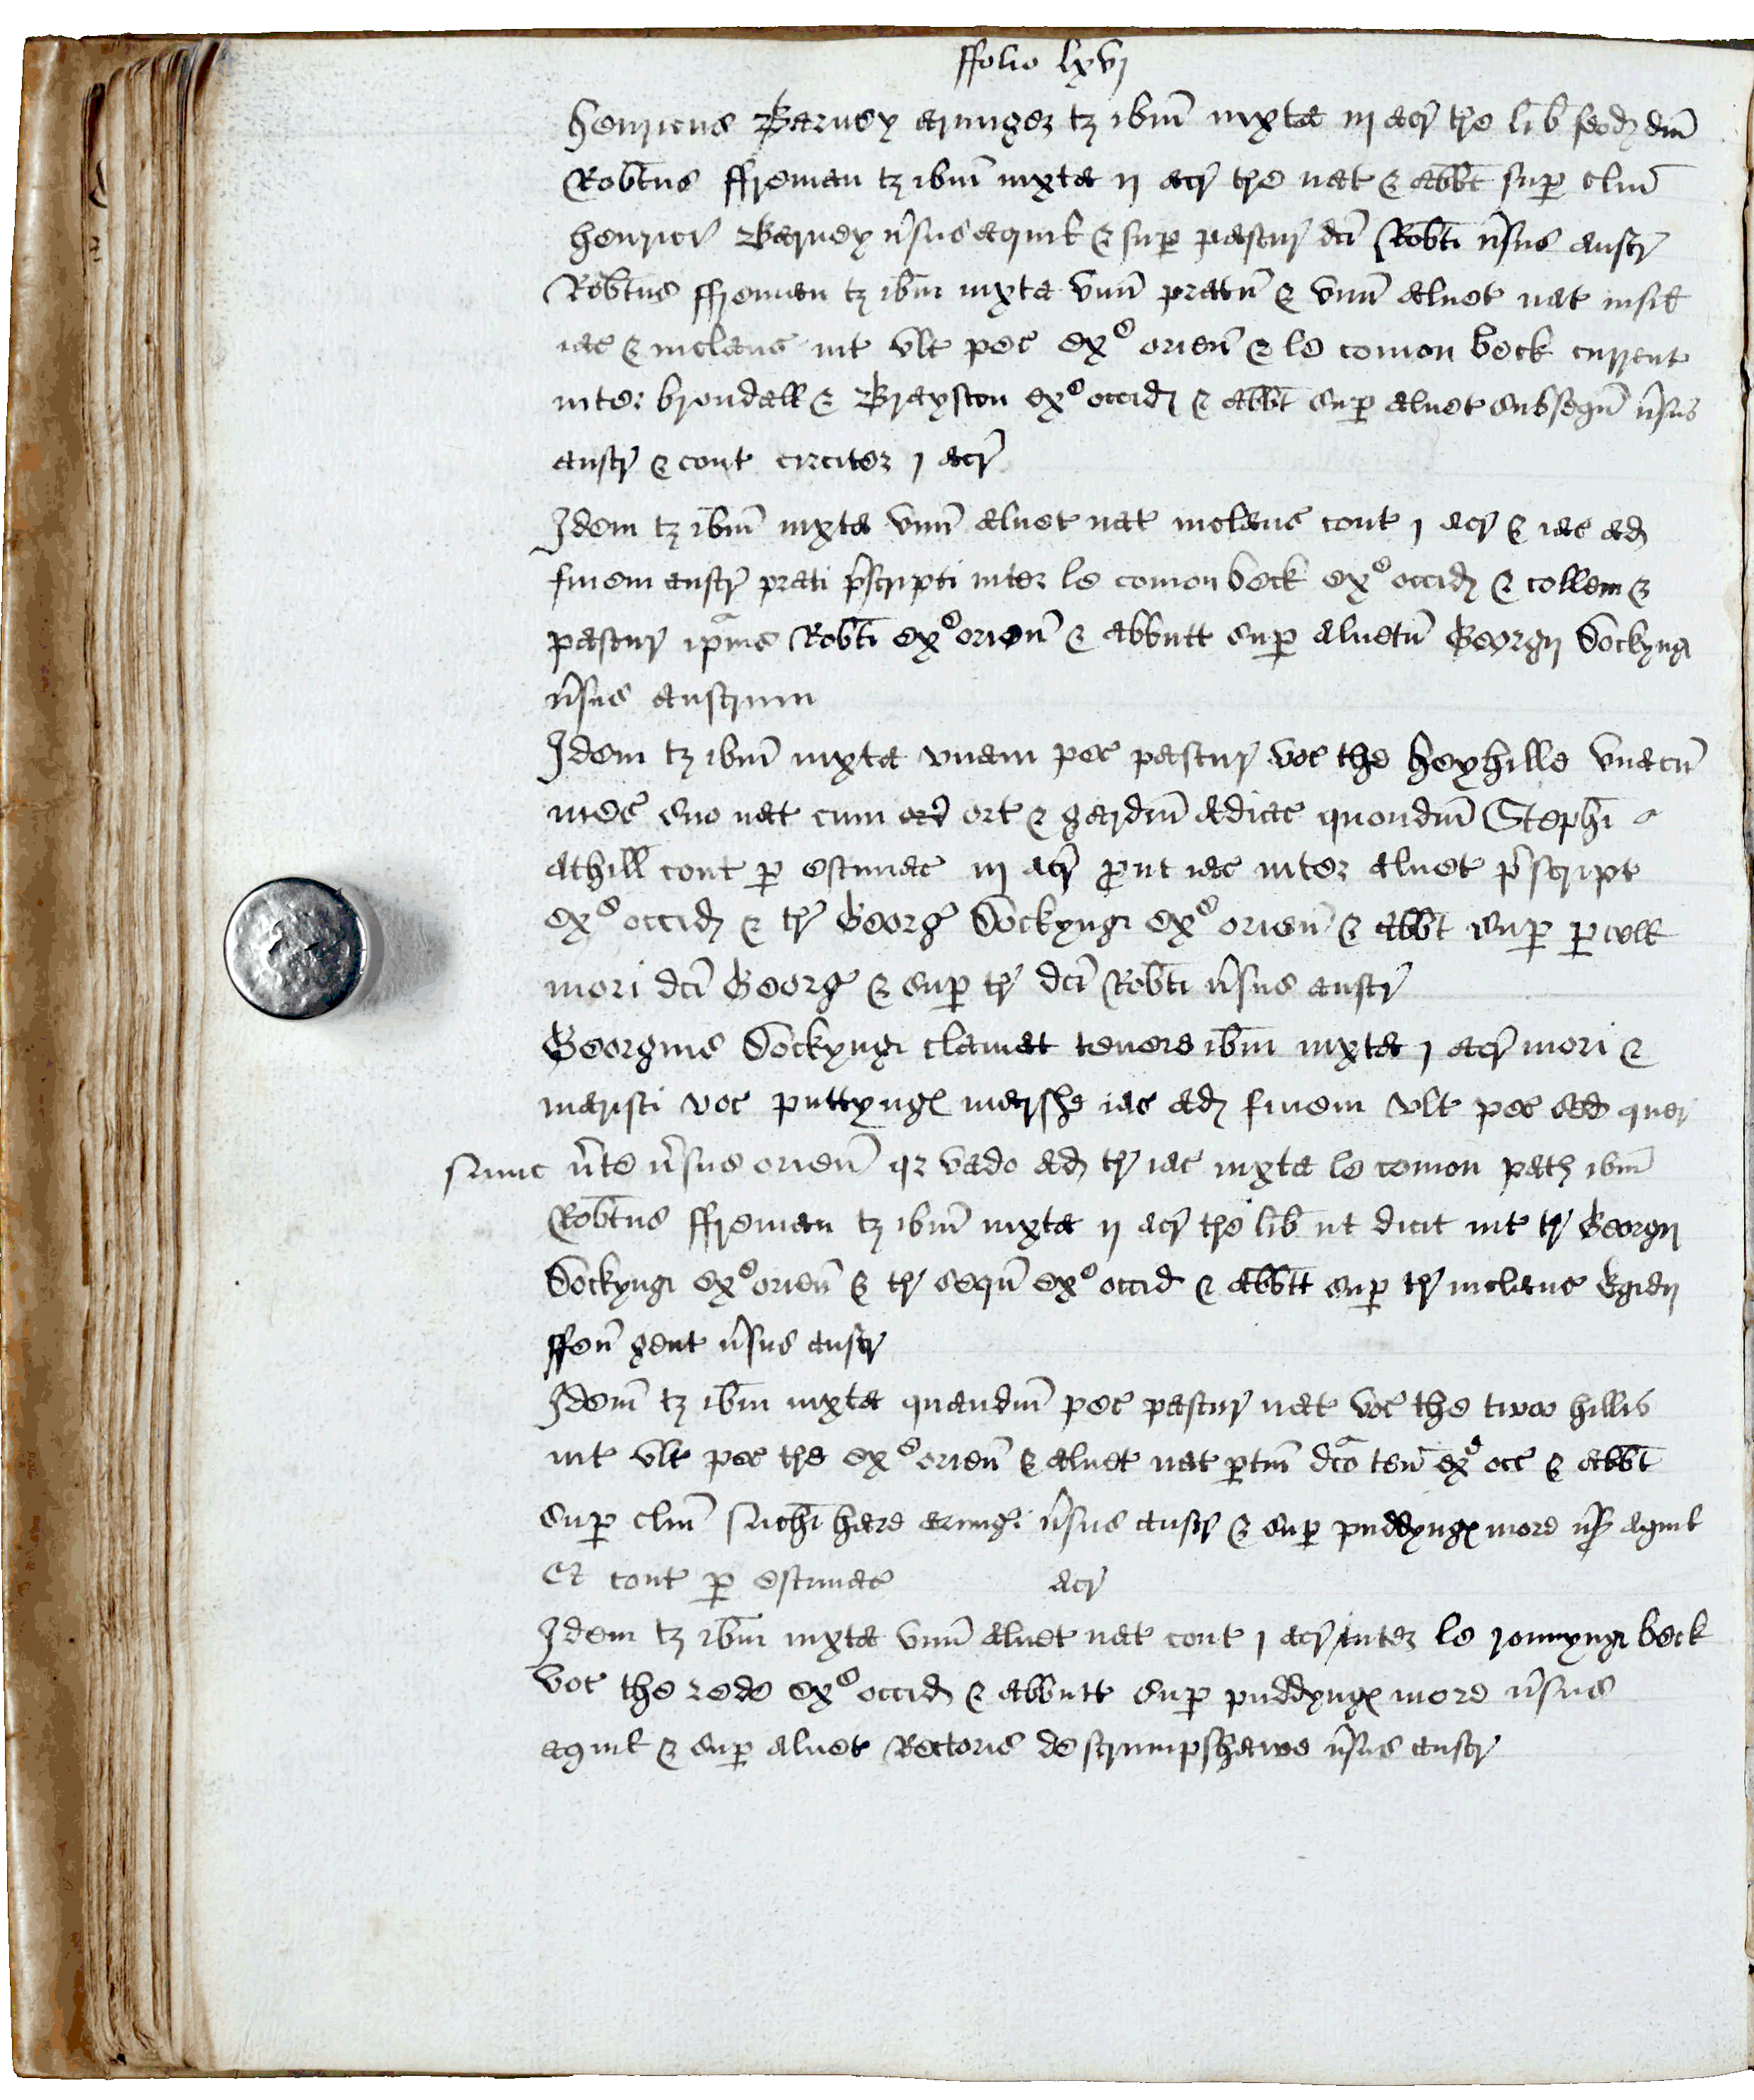 ffolio lxvj
Henricus Barney armiger t3 ibm̄ iuxta iij acr̄ tr̄e lib̄ feod dm̄
Rob̄tus ffreman t3 ibm̄ iuxta ij acr̄ tr̄e nat & abb̄t sup clm̄
Henrici Barney v̄sus aquil & sup pastur dc̄i Rob̄ti v̄sus austr
Rob̄tus ffreman t3 ibm̄ iuxta vnū pratū & vnū alnet nat insil
iac & inclaus int vlt pec ex ᵉ orien̄ & le comon beck current
inter brendall & Brayston ex ᵉ occid & abb̄t sup alnet subsequn̄ v̄sus
austr & cont circiter j acr̄
Idem t3 ibm̄ iuxta vnū alnet nat inclaus cont j acr̄ & iac ad
finem austr prati p̄scripti inter le comon beck ex ᵉ occid & collem &
pastur ip̄ius Rob̄ti ex ᵉ orien̄ & abbutt sup alnetū Georgij Dockyng
v̄sus austrum
Idem t3 ibm̄ iuxta vnam pec pastur voc the heyhille vnacū
mes̄ suo nat cum ort & gardin̄ adiac quondm̄ Steph̄i
Athill cont p estimac iij acr̄ put iac inter alnet p̄script
ex ᵉ occid & tr̄ Georḡ Dockyng ex ᵉ orien̄ & abb̄t sup
mori dc̄i Georḡ & sup tr̄ dc̄i Rob̄ti v̄sus austr
Georgius Dockyng clamat tenere ibm̄ iuxta j acr̄ mori &
marisci voc puttyng marshe iac ad finem vlt pec sed quer
v̄te v̄sus orien̄ q3 vado ad tr̄ iac iuxta le comon path ibm̄
Rob̄tus ffreman t3 ibm̄ iuxta ij acr̄ tr̄e lib̄ ut dicit int tr̄ Georgij
Dockyng ex ᵉ orien̄ & tr̄ sequn̄ ex ᵉ occid & abb̄tt sup tr̄ inclaus Egidij
ffen̄ gent v̄sus austr
Idem̄ t3 ibm̄ iuxta quandm̄ pec pastur nat voc the twoo hillis
int vlt pec tr̄e ex ᵉ orien̄ & alnet nat ptin̄ dc̄o ten̄ ex ᵉ occ & abb̄t
sup clm̄ hare armiḡi v̄sus austr & sup puddyng more v̄s aquil
Et cont p estimac acr̄
Idem t3 ibm̄ iuxta vnū alnet nat cont j acr̄ inter le rennyng beck
voc the rede ex ᵉ occid & abbutt sup puddyng more v̄sus
aquil & sup alnet Rectoris de strumpshawe v̄sus austr